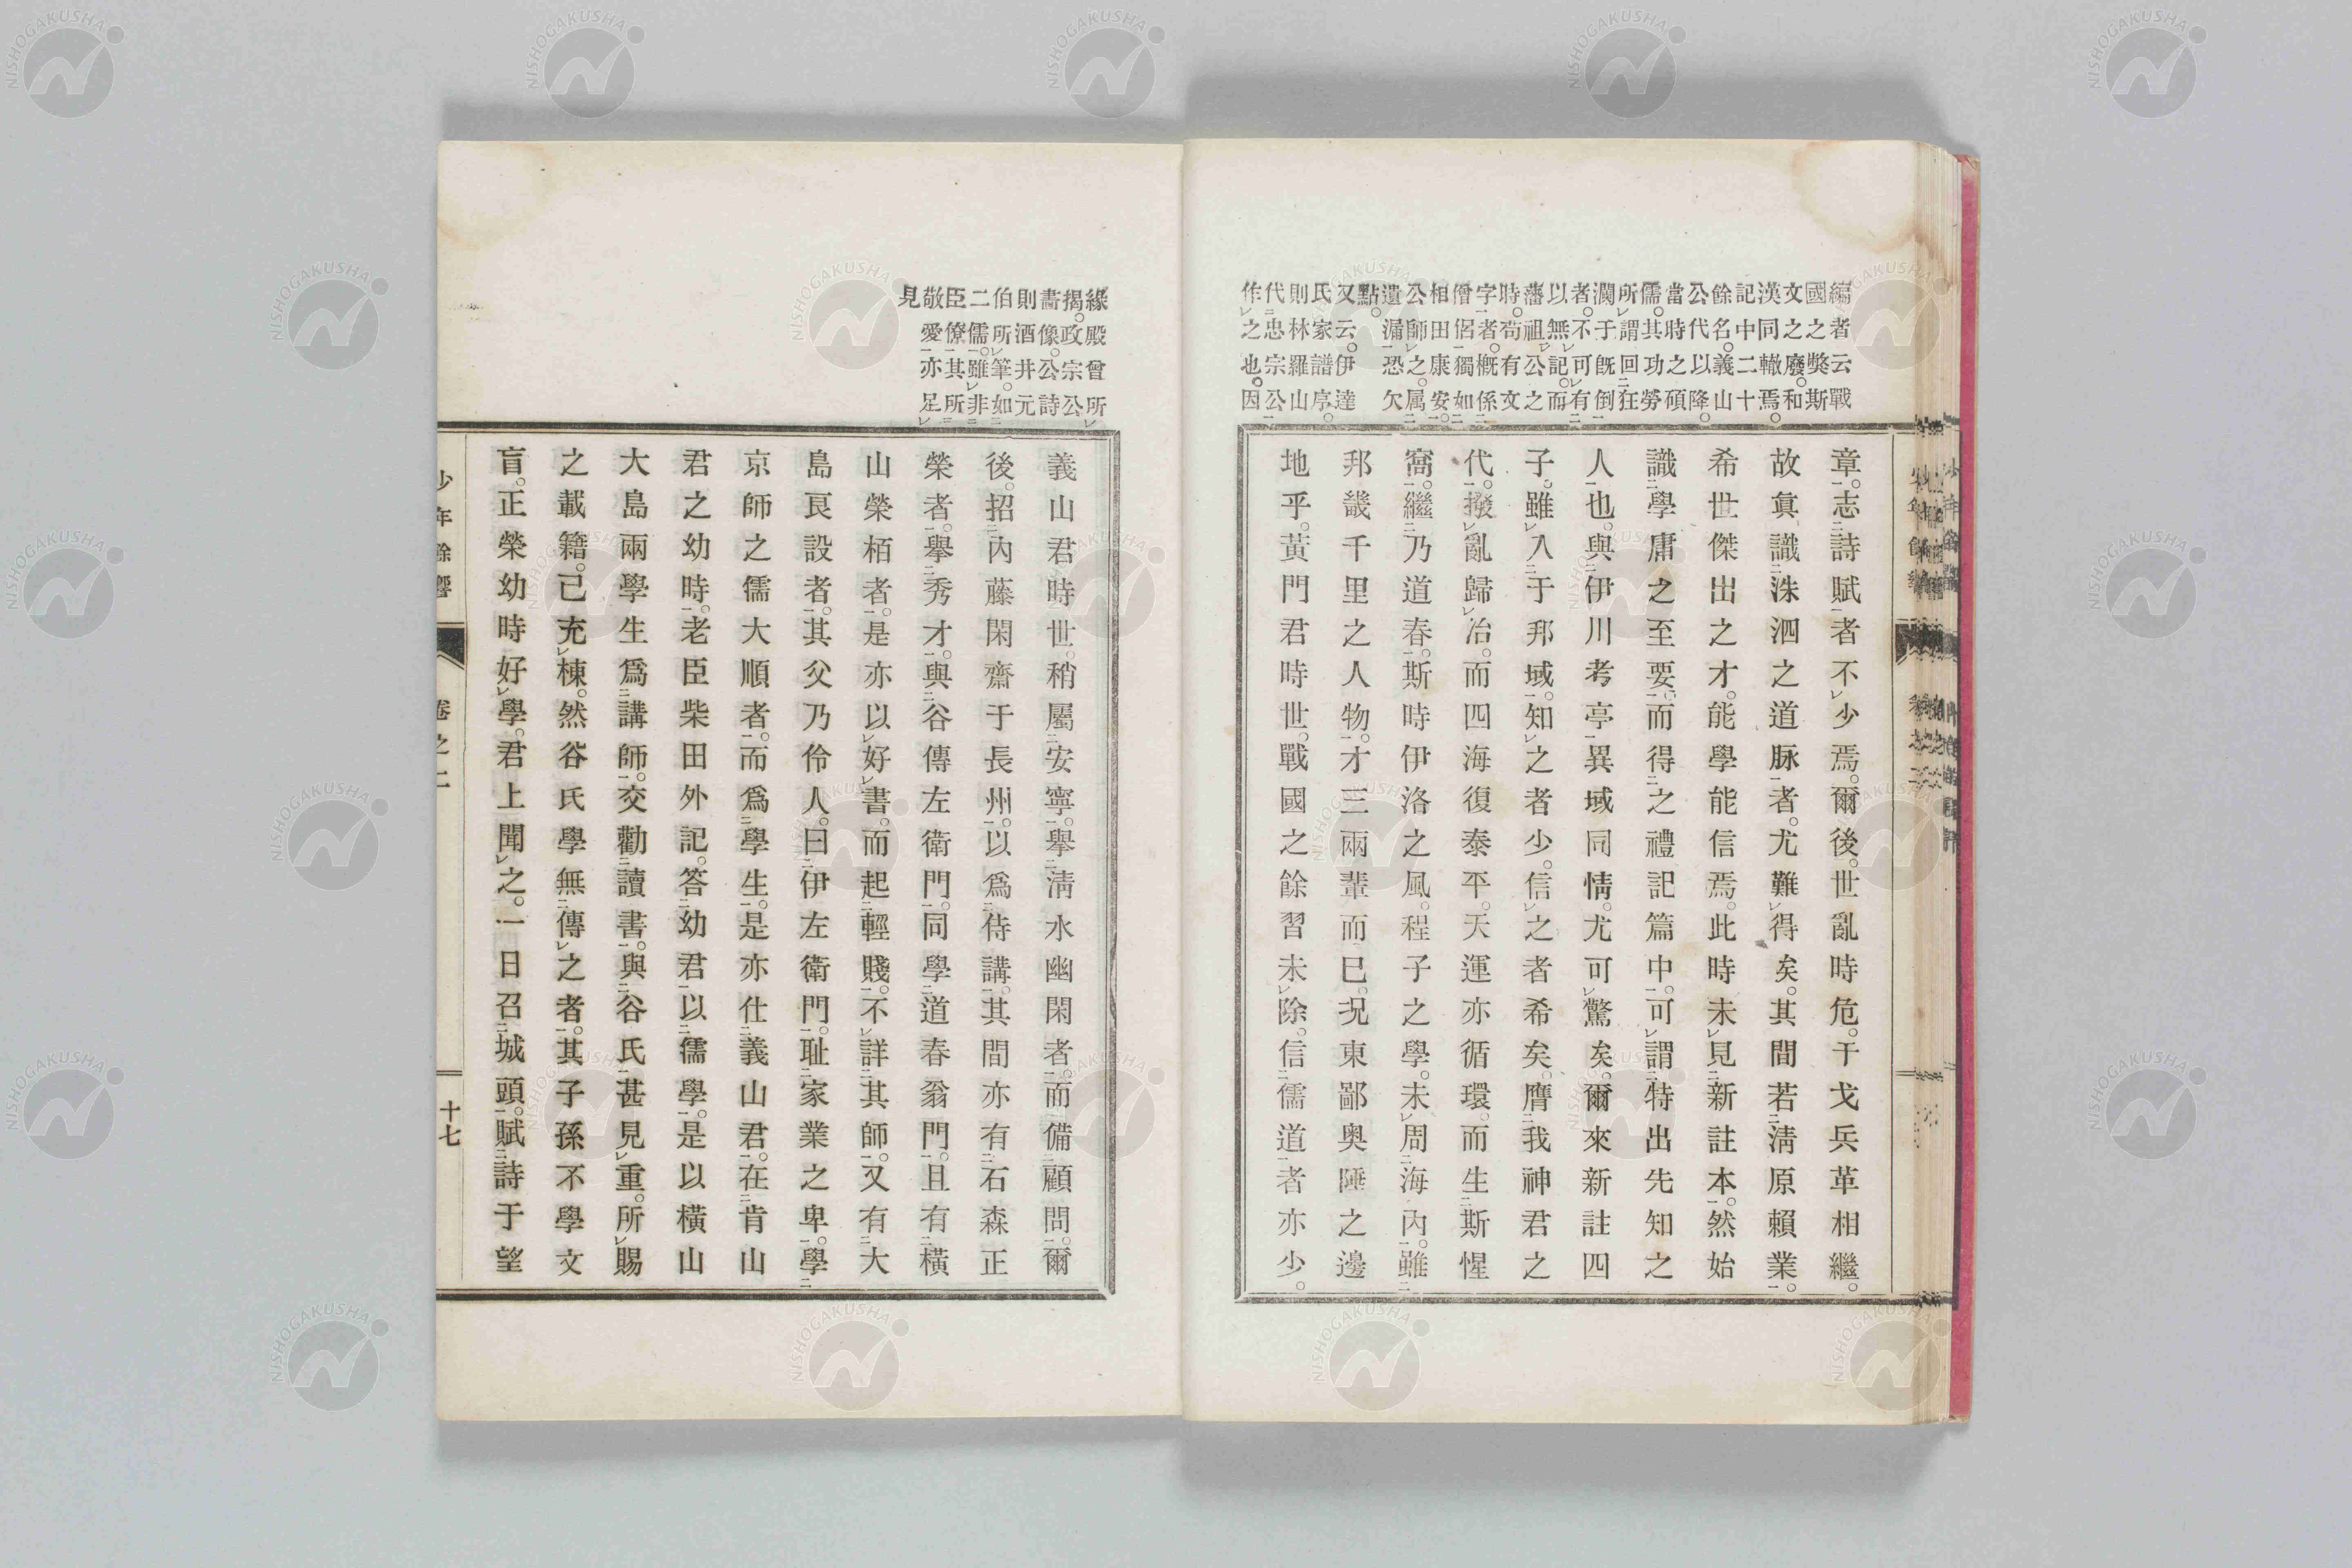 編者云戰
國之弊斯
文之廢。和
漢同轍焉。
記中二十
餘名。義山
公代以降。
當時之碩
儒。其功勞
所謂回狂
瀾于既倒
者。不可有
以無記。而
藩祖公之
時。苟有文
字者。概係
僧侶。獨如
相田康安。
公師之。属
遺漏恐欠
點。
又云。伊達
氏家譜序。
則林羅山
代忠宗公
作之也。因
章。志詩賦者不少焉。爾後。世亂時危。干戈兵革相繼。
故眞識洙泗之道脉者。尤難得矣。其間若淸原賴業。
希世傑出之才。能學能信焉。此時未見新註本。然始
識學庸之至要。而得之禮記篇中。可謂特出先知之
人也。與伊川考亭異域同情。尤可驚矣。爾來新註四
子。雖入于邦域。知之者少。信之者希矣。膺我神君之
代。撥亂歸治。而四海復泰平。天運亦循環。而生斯惺
窩。繼乃道春。斯時伊洛之風。程子之學。未周海內。雖
邦畿千里之人物。才三兩輩而已。况東鄙奧陲之邊
地乎。黃門君時世。戰國之餘習未除。信儒道者亦少。
緣殿曾所
揭。政宗公
畫像。公詩
則酒井元
伯所筆。如
二儒。雖非
臣僚。其所
敬愛亦足
見
義山君時世。稍屬安寧。擧淸水幽閑者。而備顧問。爾
後。招內藤閑齋于長州。以爲侍講。其間亦有石森正
榮者。擧秀才。與谷傳左衛門。同學道春翁門。且有橫
山榮栢者。是亦以好書。而起輕賤。不詳其師。又有大
島良設者。其父乃伶人。曰伊左衛門。耻家業之卑。學
京師之儒大順者。而爲學生。是亦仕義山君。在肯山
君之幼時。老臣柴田外記。答幼君以儒學。是以橫山
大島兩學生爲講師。交勸讀書。與谷氏甚見重。所賜
之載籍。已充棟。然谷氏學無傳之者。其子孫不學文
盲。正榮幼時好學。君上聞之。一日召城頭。賦詩于望
少年餘響 卷之二 十七